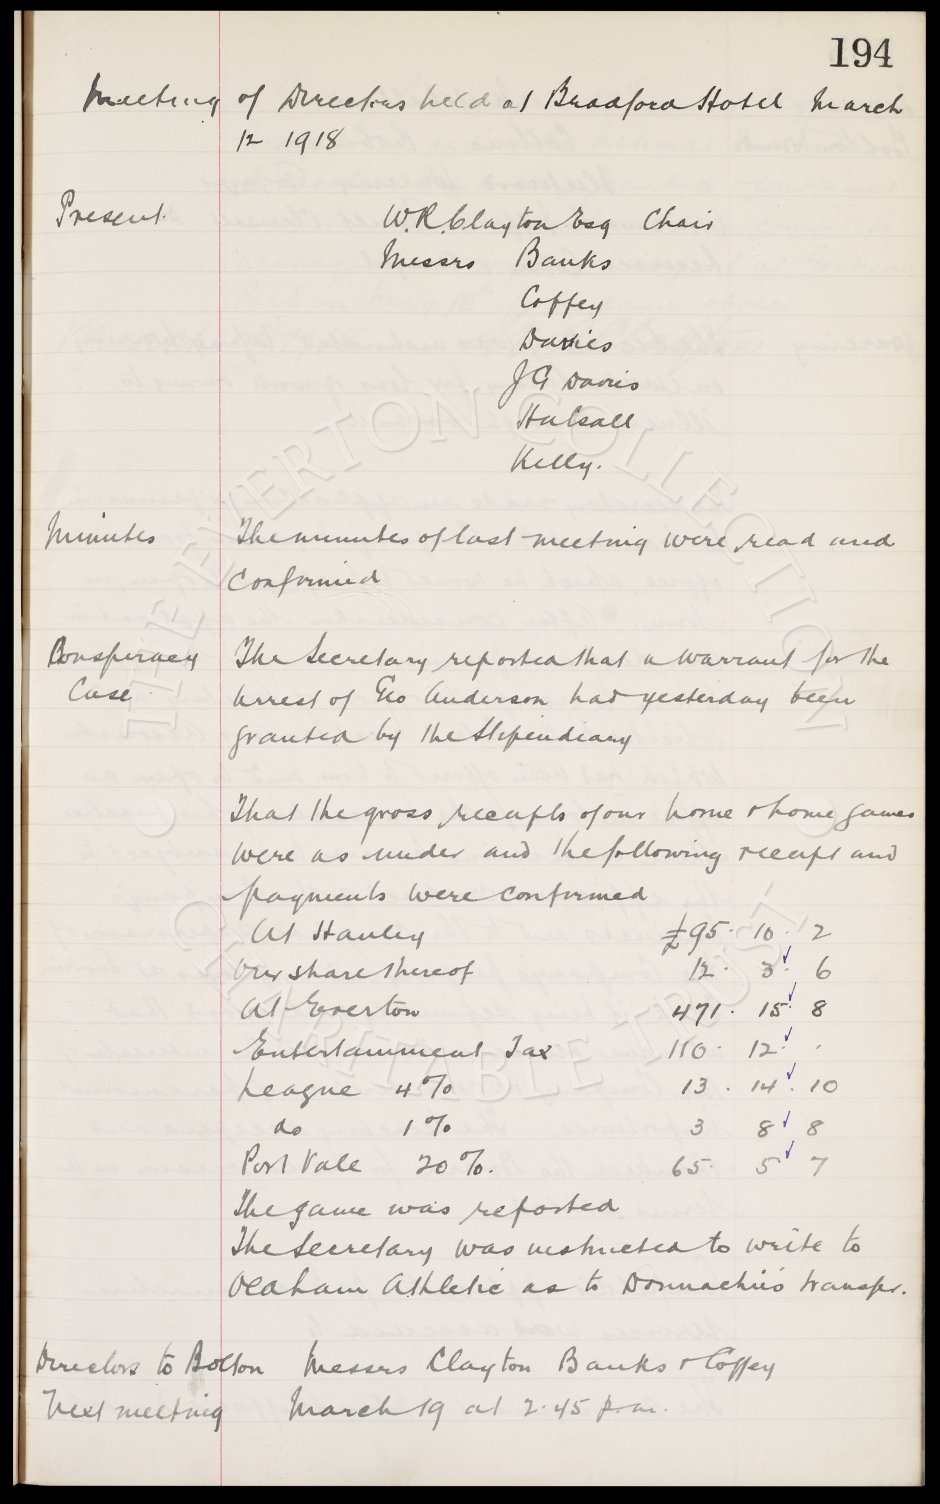 194
Meeting of Directors held at Bradford Hotel March
12 1918
Present. W. R. Clayton Esq Chair
Messrs Banks
Coffey
Davies
J G Davis
Halsall
Kelly.
Minutes The minutes of last meeting were read and
Confirmed
Conspiracy The Secretary reported that a warrant for the
Case arrest of Geo Anderson had yesterday been
granted by the Stipendiary
That the gross receipts of our home & home games
were as under and the following receipt and
payments were confirmed
At Hanley £95. 10. 2
Our share thereof 12. 3. 6
At Everton 471. 15. 8
Entertainment Tax 110. 12. .
League 4% 13. 14. 10
do 1% 3 8 8
Port Vale 20%. 65. 5 7
The game was reported
The Secretary was instructed to write to
Oldham Athletic as to Donnachie's transfer.
Directors to Bolton Messrs Clayton Banks & Coffey
Next meeting March 19 at 2.45 p.m.
THE EVERTON COLLECTION
CHARITABLE TRUST